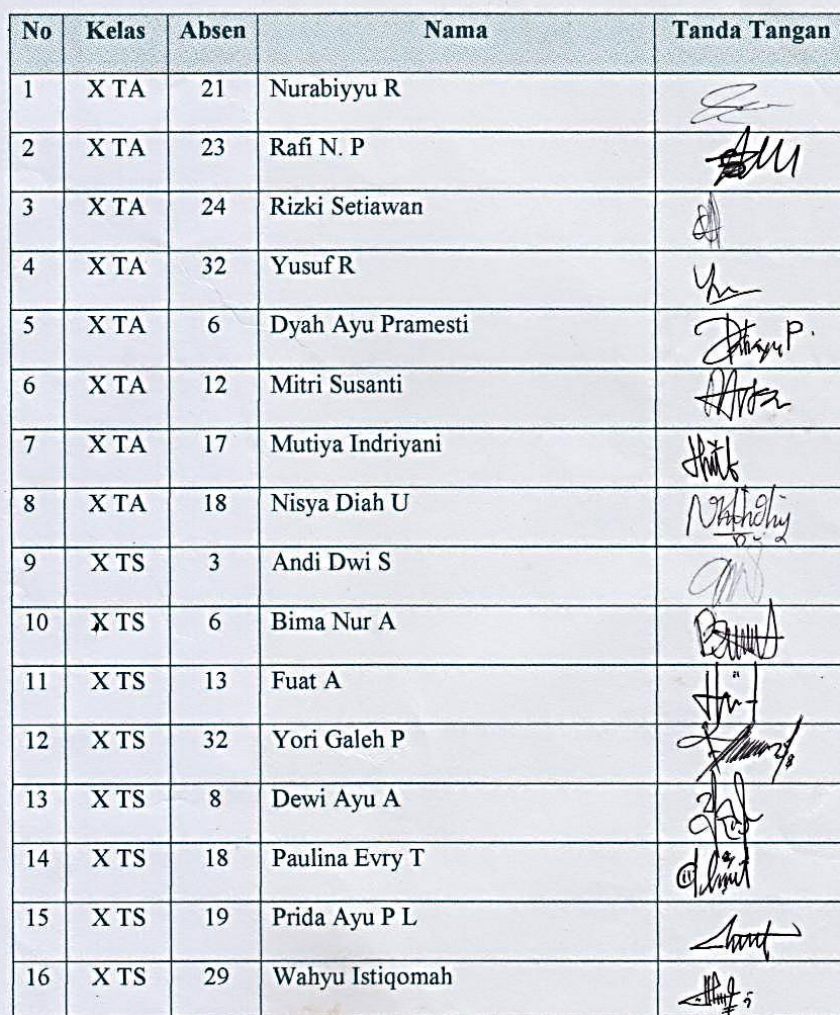 No Kelas Absen Nama Tanda Tangan
1 X TA 21 Nurabiyyu R
2 X TA 23 Rafi N. P
3 X TA 24 Rizki Setiawan
4 X TA 32 Yusuf R
5 X TA 6 Dyah Ayu Pramesti
6 X TA 12 Mitri Susanti
7 X TA 17 Mutiya Indriyani
8 X TA 18 Nisya Diah U
9 X TS 3 Andi Dwi S
10 X TS 6 Bima Nur A
11 X TS 13 Fuat A
12 X TS 32 Yori Galeh P
13 X TS 8 Dewi Ayu A
14 X TS 18 Paulina Evry T
15 X TS 19 Prida Ayu P L
16 X TS 29 Wahyu Istiqomah